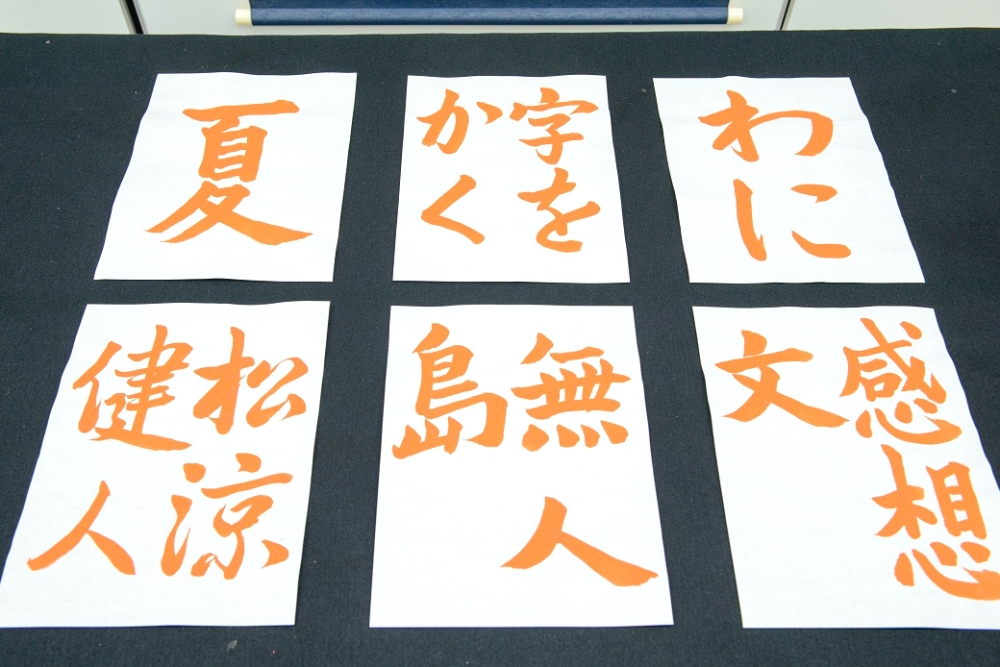 夏
字を
かく
わに
松涼
健人
無人
島
感想
文